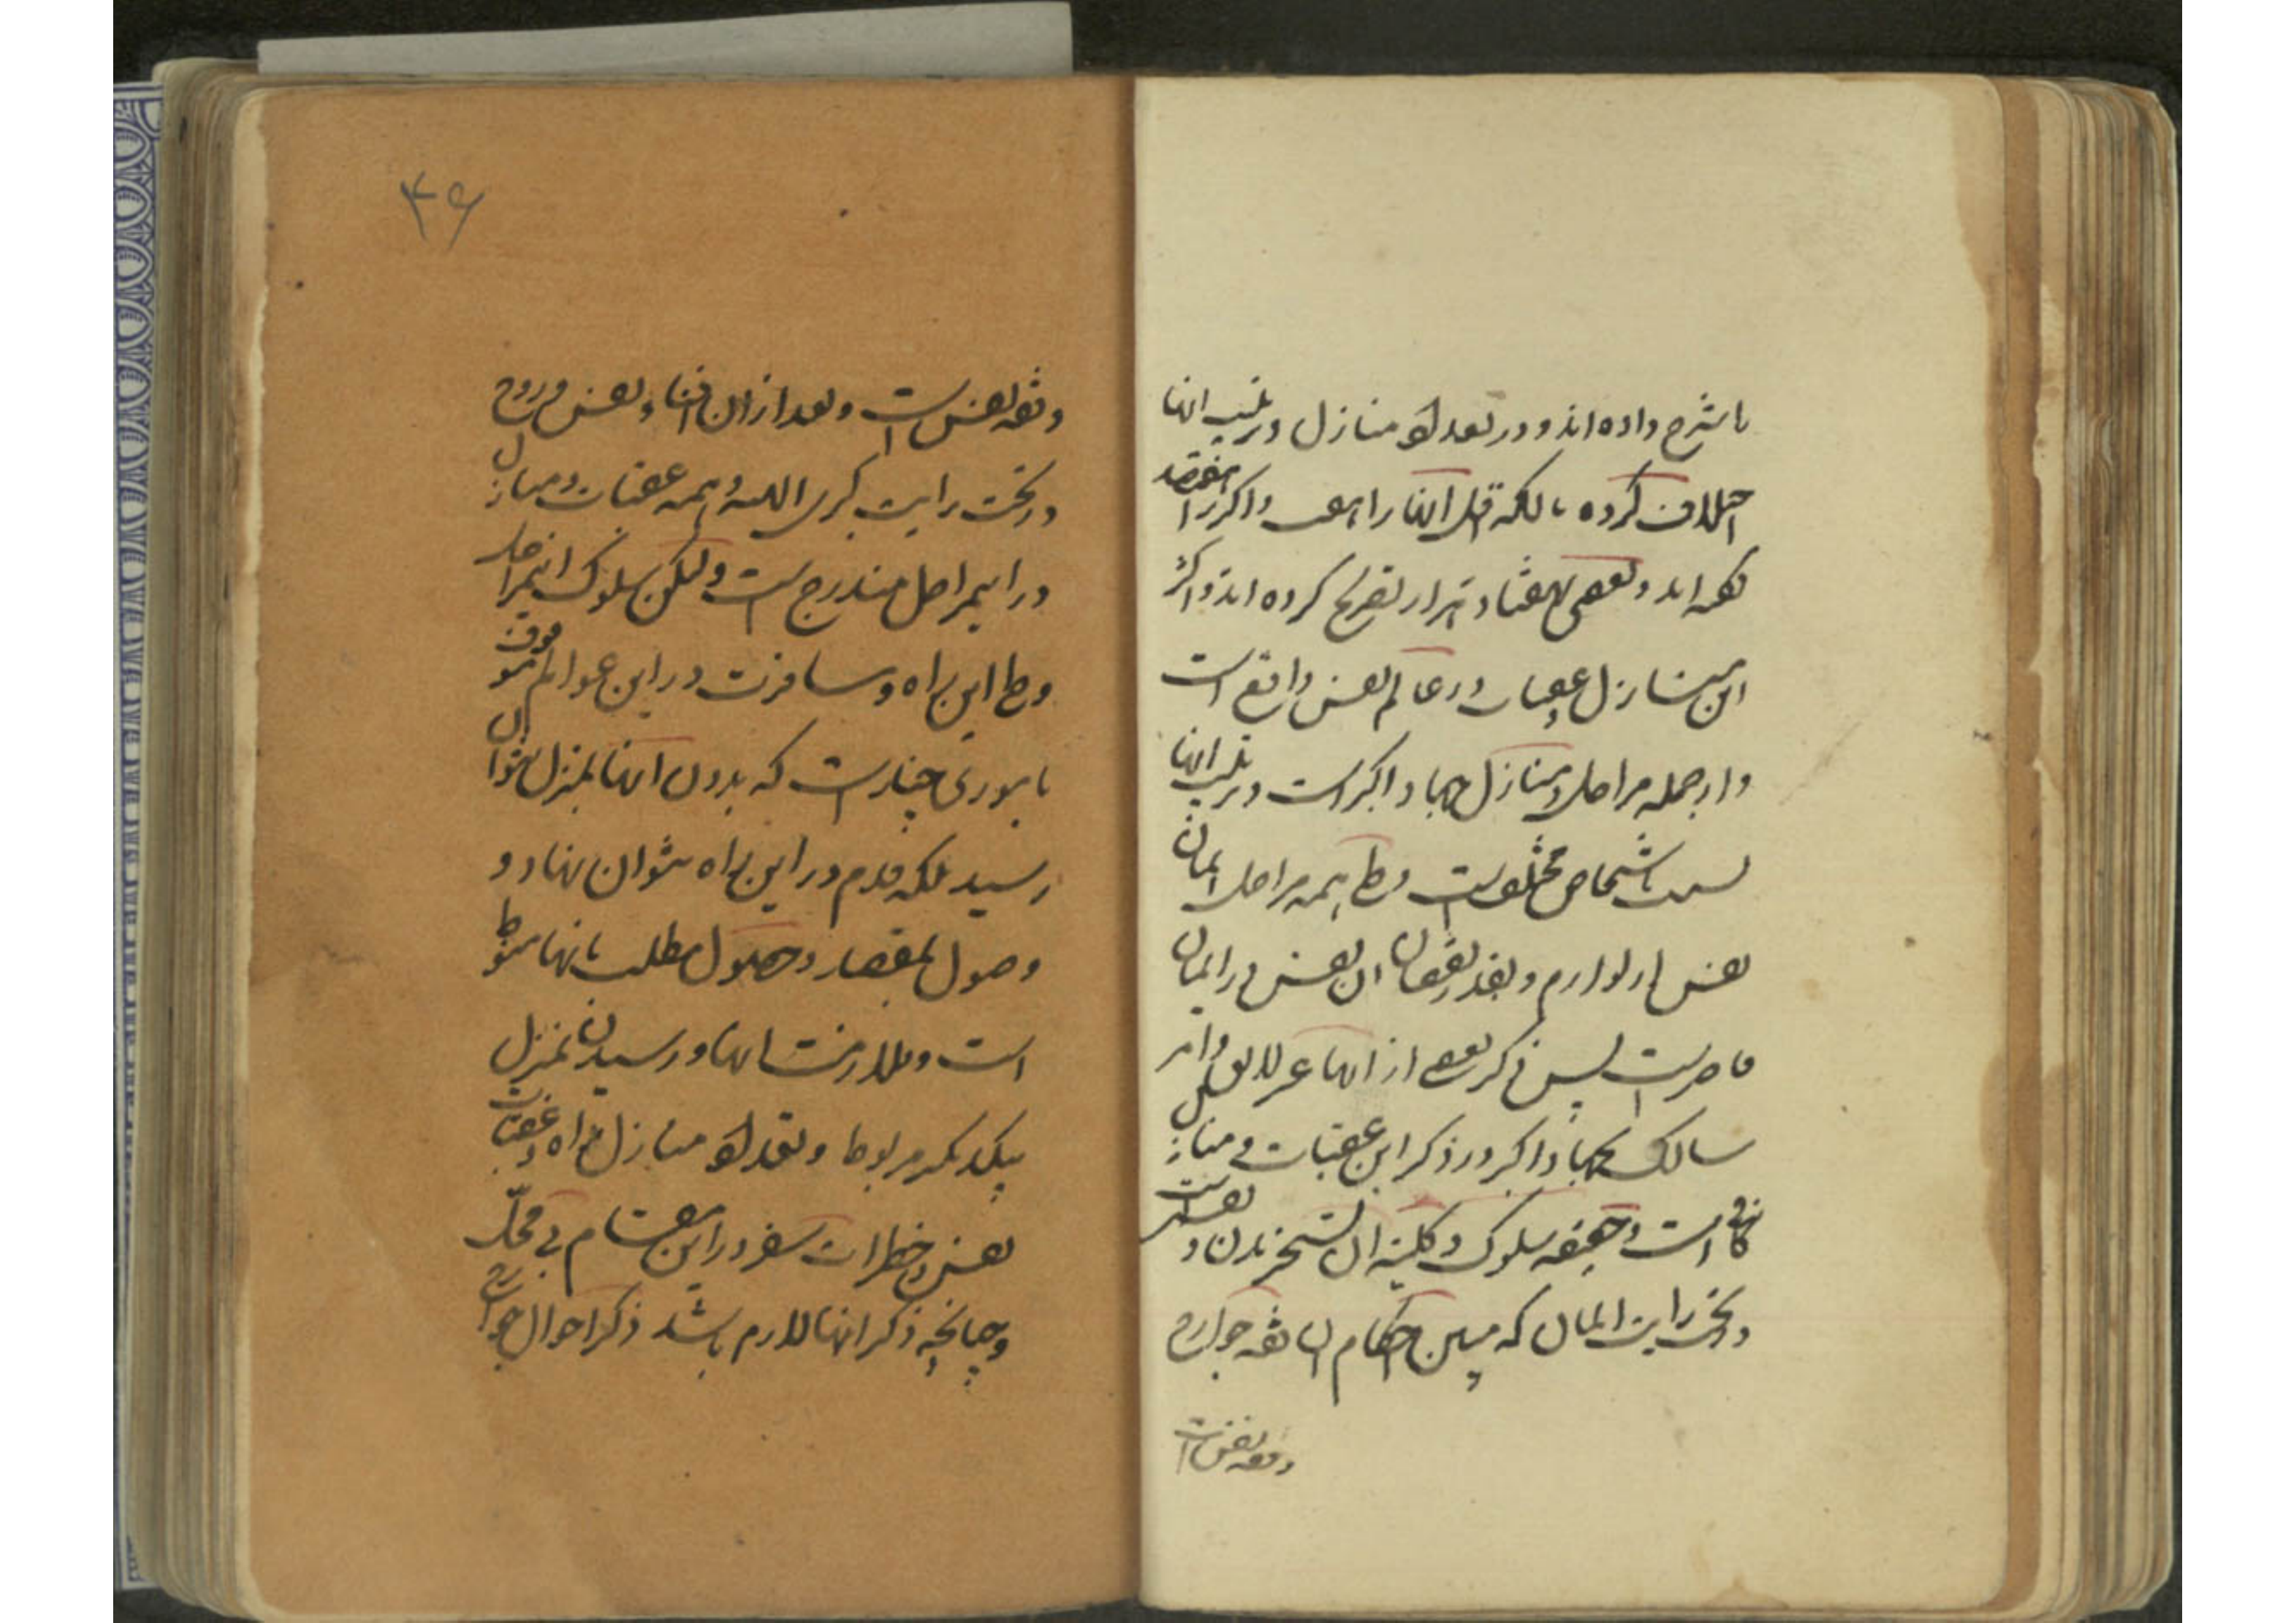 باشرح داده‌اند و در تعداد منازل و ترتیب آنها
اختلاف کرده بالکه اقل آنها را هفت و اکثر را هفتصد
گفته‌اند و بعضی بهفتاد هزار تصریح کرده‌اند و اکثر
این منازل و عقبات در عالم نفس واقع است
و از جمله مراحل و منازل جهاد اکبر است و ترتیب آنها
نسبت باشخاص مختلف است و طی همه مراحل ایمان
نفس را لازم و بقدر نقصان آن نفس در ایمان
قاصر است پس ذکر بعضی از آنها
سالک بجهاد اکبر در ذکر این عقبات و منازل
کافی است و حقیقت سلوک و کلید آن تسخیر بدن و نفس است
در تحت رایت ایمان که مبین احکام آن فقه جوارح
و فقه نفس است
۴۶
و فقه نفس است و بعد از آن افناء نفس و روح
در تحت رایت کبریای الهیه و همه عقبات و منازل
در این مراحل مندرج است ولیکن سلوک این مراحل
و طی این راه و مسافرت در این عوالم موقوف
بأموری چند است که بدون آنها بمنزل نتوان
رسید بلکه قدم در این راه نتوان نهاد و
وصول بمقصد و حصول مطلب بآنها منوط
است و ملازمت آنها و رسیدن بمنزل
بیکدیگر مربوط و تعداد منازل راه و عقبات
نفس و خطرات سفر در این مقام بی محل
و چنانچه ذکر آنها لازم باشد ذکر احوال جوارح